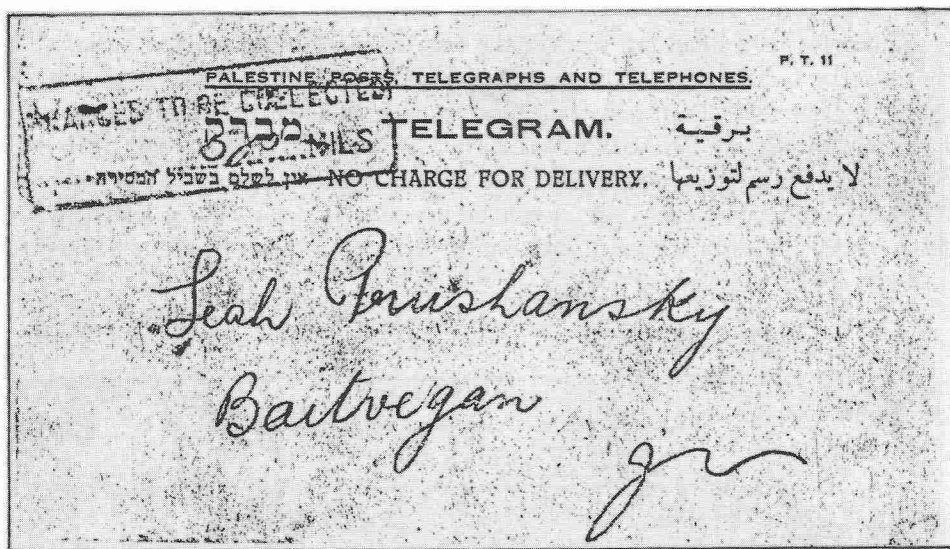 P. T. 11
PALESTINE POSTS, TELEGRAPHS AND TELEPHONES.
CHARGES TO BE COLLECTED
מברק TELEGRAM. برقية
MILS
אין לשלם בשביל המסירה NO CHARGE FOR DELIVERY. لا يدفع رسم لتوزيعها
Leah Prushansky
Baitvegan